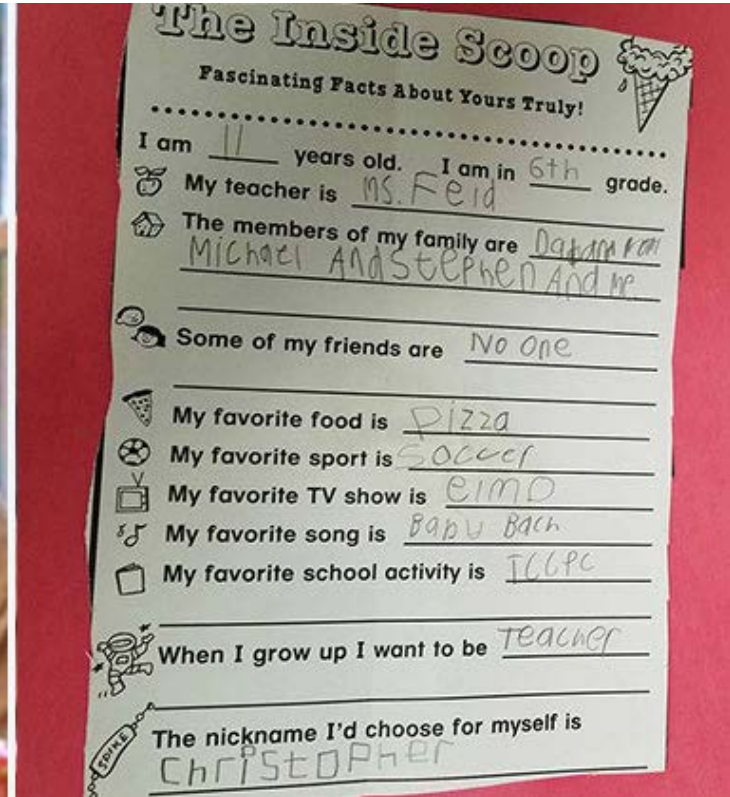 The Inside Scoop
Fascinating Facts About Yours Truly!
I am 11 years old. I am in 6th grade.
My teacher is MS. Feid
The members of my family are
Michael And Stephen And me.
Some of my friends are No One
My favorite food is pizza
My favorite sport is Soccer
My favorite TV show is elmo
My favorite song is Baby Bach
My favorite school activity is
When I grow up I want to be Teacher
SPIKE
The nickname I'd choose for myself is
Christopher